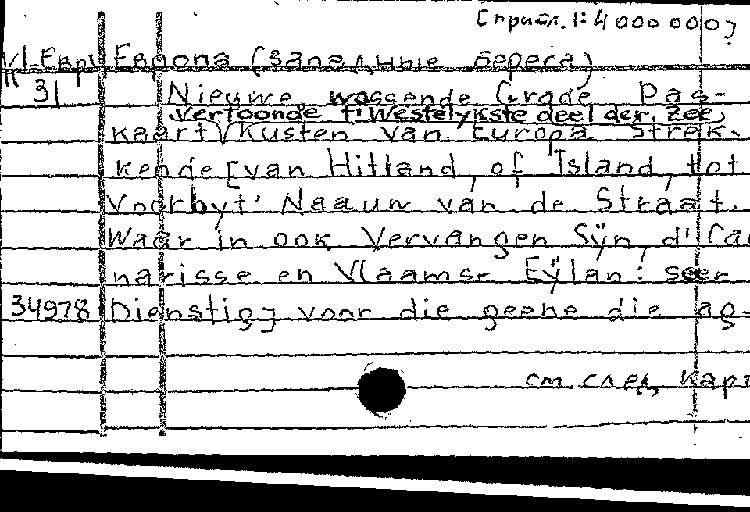 [прибл. 1:4 000 000]
VI-Евр Европа (западные берега)
31 Nieuwe wassende Grade Pas-
Vertoonde t' Westelykste deel der Zee
kaart Kusten van Europa Strek-
kende [van Hitland, of Island, tot
Voorbyt' Naauw van de Straat.
Waar in ook Vervangen Sÿn, d' Ca
narisse en Vlaamse Eÿlan: seer
34978 Dienstig] voor die geene die ag-
см. след. карт